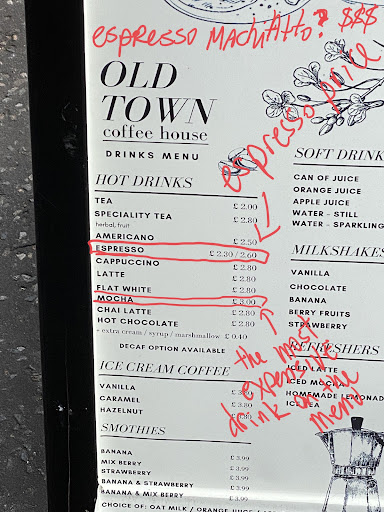 espresso machiatto? $$$
OLD
TOWN
coffee house
DRINKS MENU
espresso price
HOT DRINKS
TEA £ 2.00
SPECIALITY TEA £ 2.80
herbal, fruit
AMERICANO £ 2.50
ESPRESSO £ 2.30 / 2.60
CAPPUCCINO £ 2.80
LATTE £ 2.80
FLAT WHITE £ 2.80
MOCHA £ 3.00
CHAI LATTE £ 2.80
HOT CHOCOLATE £ 2.80
+ extra cream / syrup / marshmallow £ 0.40
DECAF OPTION AVAILABLE
the most
expensive
drink on the
menu
ICE CREAM COFFEE
VANILLA £ 3.80
CARAMEL £ 3.80
HAZELNUT £ 3.80
SMOTHIES
BANANA £ 3.99
MIX BERRY £ 3.99
STRAWBERRY £ 3.99
BANANA & STRAWBERRY £ 3.99
BANANA & MIX BERRY £ 3.99
CHOICE OF: OAT MILK / ORANGE JUICE
SOFT DRINK
CAN OF JUICE
ORANGE JUICE
APPLE JUICE
WATER - STILL
WATER - SPARKLING
MILKSHAKES
VANILLA
CHOCOLATE
BANANA
BERRY FRUITS
STRAWBERRY
REFRESHERS
ICED LATTE
ICED MOCHA
HOMEMADE LEMONAD
ICE TEA